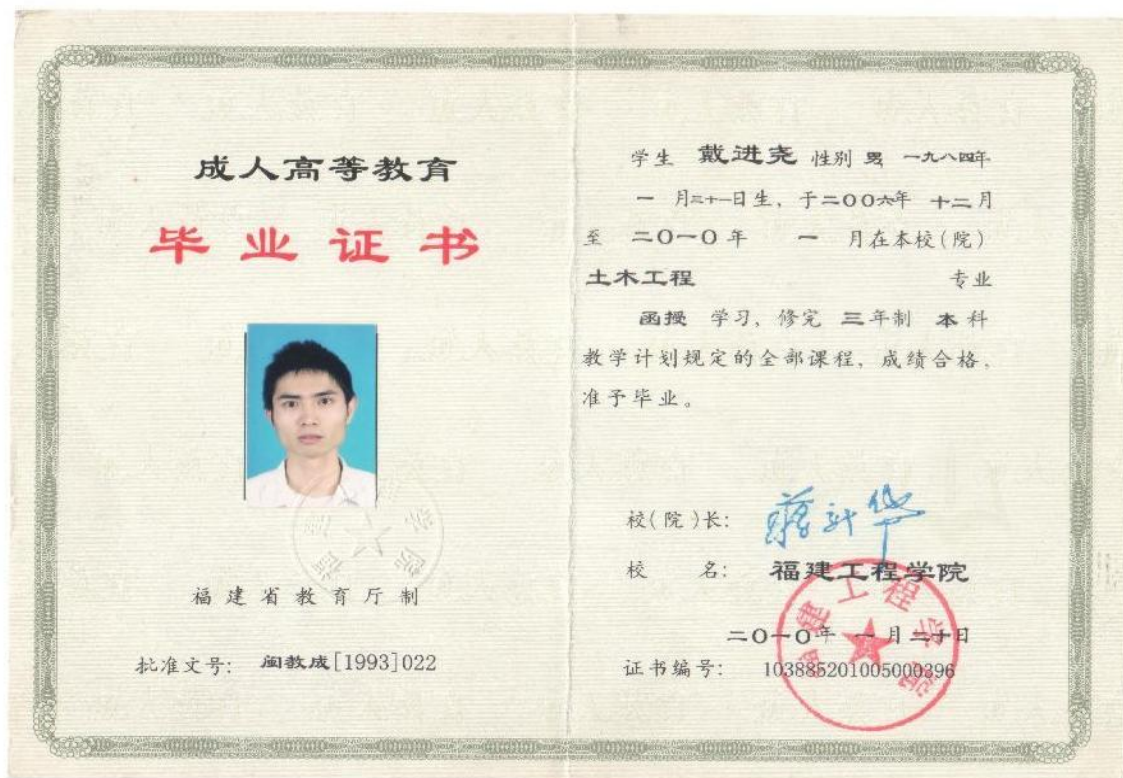 成人高等教育
毕业证书
福建省教育厅制
批准文号: 闽教成[1993]022
学生 戴进尧 性别 男 一九八四年
一 月二十一日生, 于二〇〇六年 十二月
至 二〇一〇年 一 月在本校(院)
土木工程 专业
函授 学习, 修完 三年制 本科
教学计划规定的全部课程, 成绩合格,
准予毕业。
校(院)长: 蒋新华
校 名: 福建工程学院
二〇一〇年 一 月 二十日
证书编号: 103885201005000396
福建工程学院